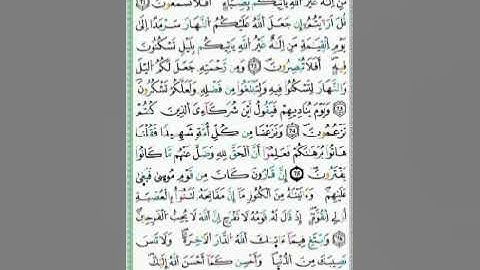 مَنِ اِلَٰهٌ غَيْرُ اللَّهِ يَاتِيكُم بِضِيَآءٍ اَفَلَا تَسْمَعُونَ
قُلَ اَرَٰٓيْتُمُۥٓ إِن جَعَلَ اللَّهُ عَلَيْكُمُ النَّهَارَ سَرْمَدًا اِلَىٰ
يَوْمِ الْقِيَٰمَةِ مَنِ اِلَٰهٌ غَيْرُ اللَّهِ يَاتِيكُم بِلَيْلٍ تَسْكُنُونَ
فِيهِ أَفَلَا تُبْصِرُونَ وَمِن رَّحْمَتِهِ جَعَلَ لَكُمُ الَّيْلَ
وَالنَّهَارَ لِتَسْكُنُوا فِيهِ وَلِتَبْتَغُوا مِن فَضْلِهِ وَلَعَلَّكُمْ تَشْكُرُونَ
وَيَوْمَ يُنَادِيهِمْ فَيَقُولُ أَيْنَ شُرَكَآءِيَ الَّذِينَ كُنتُمْ
تَزْعُمُونَ وَنَزَعْنَا مِن كُلِّ أُمَّةٍ شَهِيدًا فَقُلْنَا
هَاتُوا بُرْهَٰنَكُمْ فَعَلِمُوٓا أَنَّ الْحَقَّ لِلَّهِ وَضَلَّ عَنْهُم مَّا كَانُوا
يَفْتَرُونَ إِنَّ قَٰرُونَ كَانَ مِن قَوْمِ مُوسَىٰ فَبَغَىٰ
عَلَيْهِمْ وَءَاتَيْنَٰهُ مِنَ الْكُنُوزِ مَآ إِنَّ مَفَاتِحَهُ لَتَنُوٓأُ بِالْعُصْبَةِ
أُولِي الْقُوَّةِ إِذْ قَالَ لَهُ قَوْمُهُ لَا تَفْرَحِ اِنَّ اللَّهَ لَا يُحِبُّ الْفَرِحِينَ
وَابْتَغِ فِيمَآ ءَاتَىٰكَ اللَّهُ الدَّارَ الَاخِرَةَ وَلَا تَنسَ
نَصِيبَكَ مِنَ الدُّنْيَا وَأَحْسِن كَمَآ أَحْسَنَ اللَّهُ إِلَيْكَ